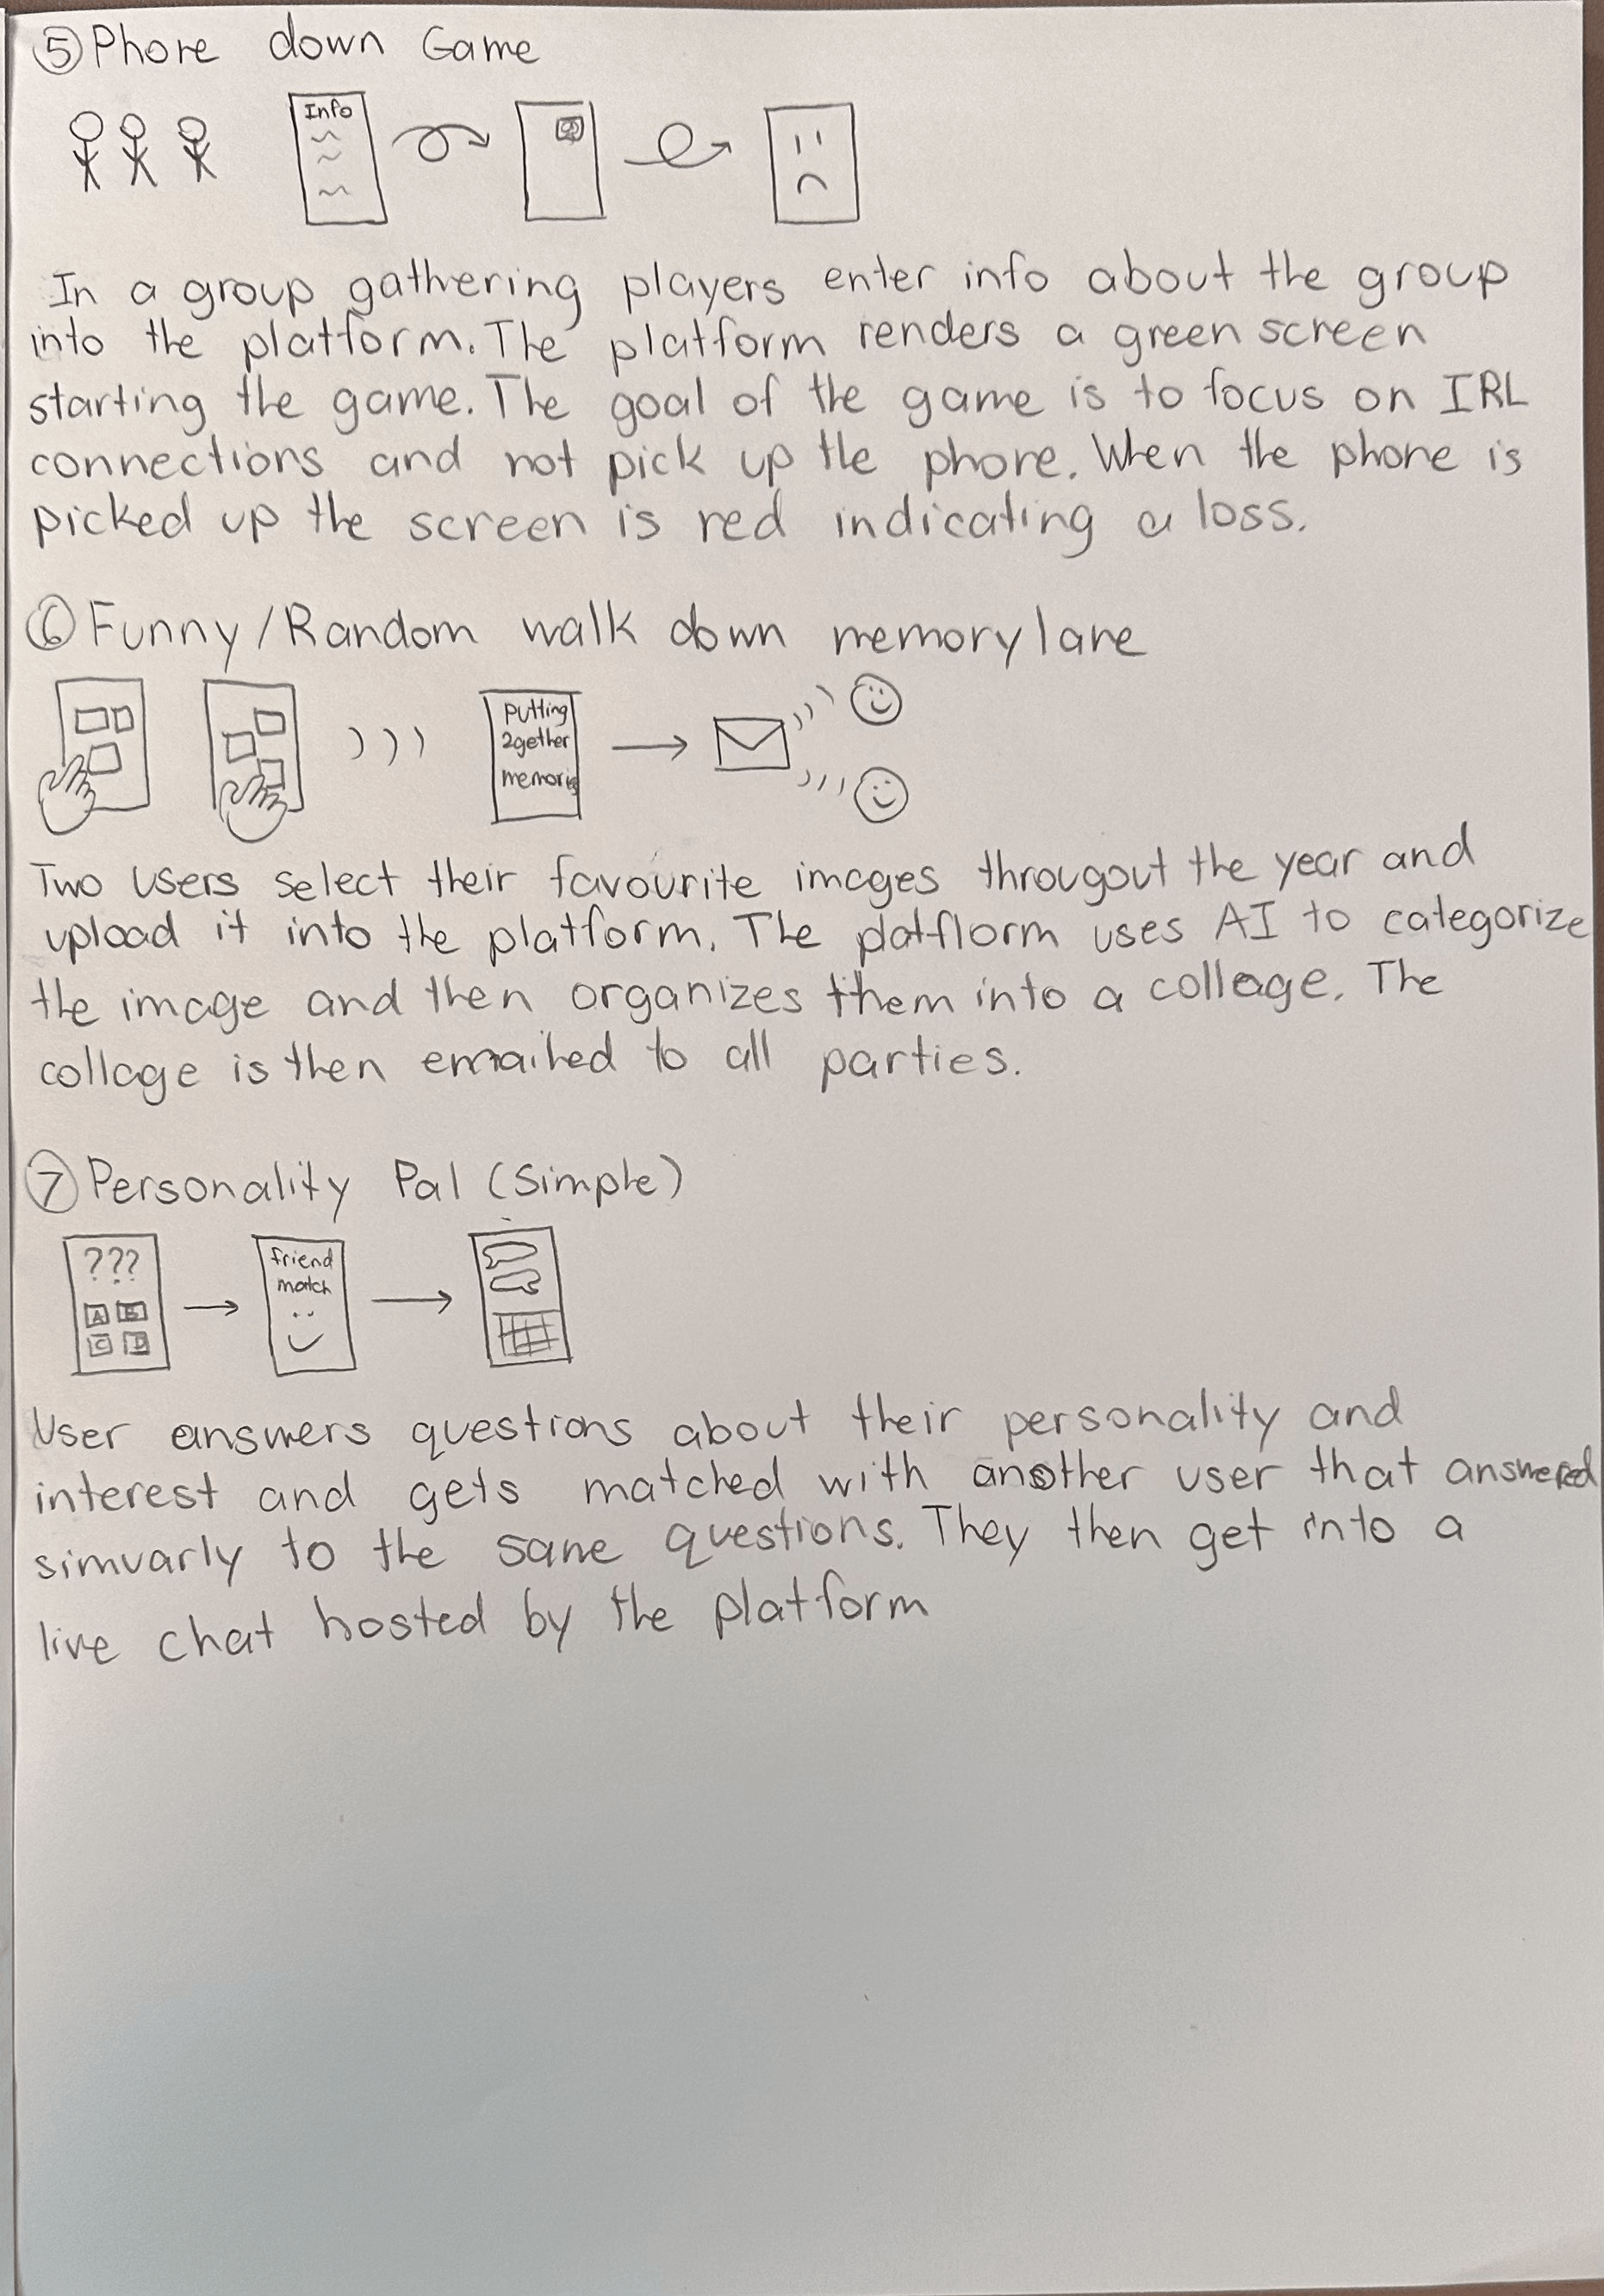 ⑤ Phone down Game
Info
In a group gathering players enter info about the group
into the platform. The platform renders a green screen
starting the game. The goal of the game is to focus on IRL
connections and not pick up the phone. When the phone is
picked up the screen is red indicating a loss.
⑥ Funny/Random walk down memory lane
Putting
2gether
memories
Two users select their favourite images througout the year and
upload it into the platform. The platflorm uses AI to categorize
the image and then organizes them into a collage. The
collage is then emailed to all parties.
⑦ Personality Pal (Simple)
???
A B
C D
friend
match
User answers questions about their personality and
interest and gets matched with another user that answered
simuarly to the same questions. They then get into a
live chat hosted by the platform